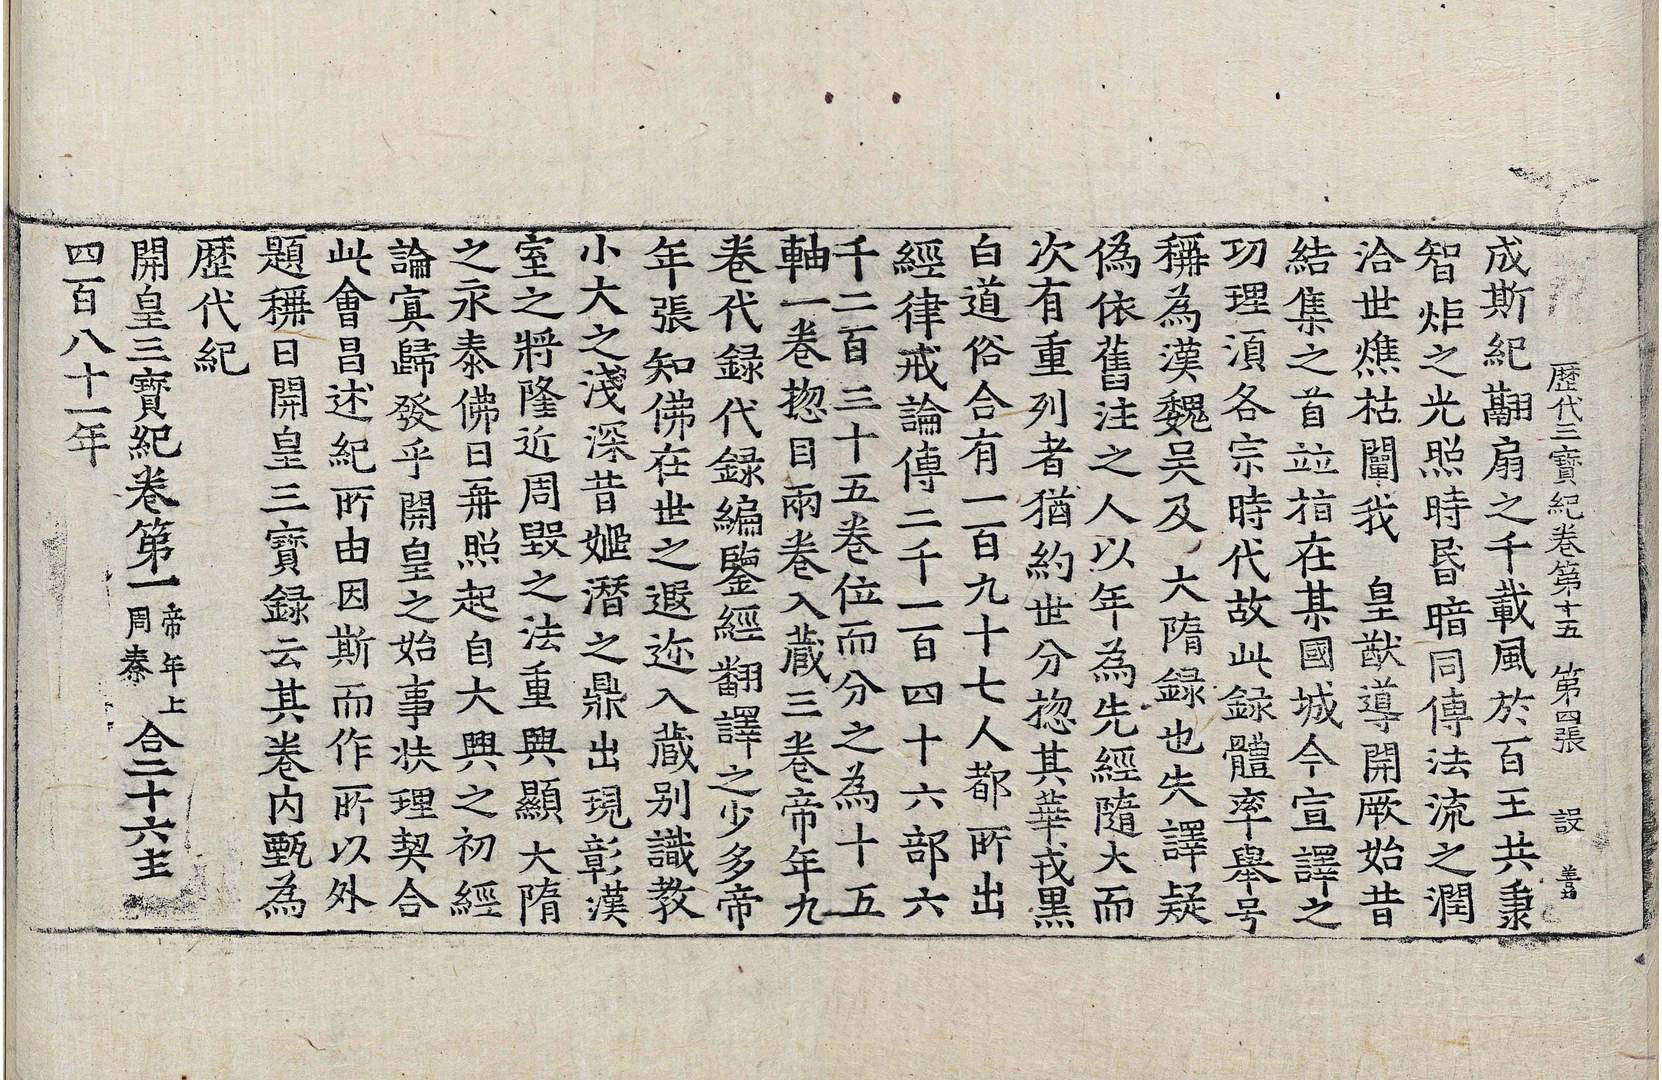 歷代三寶紀卷第十五 第四張 設 善
成斯紀翻扇之千載風於百王共秉
智炬之光照時昏暗同傳法流之潤
洽世燋枯闡我 皇猷導開厥始昔
結集之首並指在某國城今宣譯之
功理湏各宗時代故此録體率舉号
稱為漢魏吴及 大隋録也失譯疑
偽依舊注之人以年為先經隨大而
次有重列者猶約世分揔其華戎黑
白道俗合有一百九十七人都所出
經律戒論傳二千一百四十六部六
千二百三十五卷位而分之為十五
軸一卷揔目兩卷入藏三卷帝年九
卷代録代録編鑒經翻譯之少多帝
年張知佛在世之遐迩入藏別識教
小大之淺深昔姬潛之鼎出現彰漢
室之將隆近周毀之法重興顯 大隋
之永泰佛日再照起自大興之初經
論冥歸發乎開皇之始事扶理契合
此會昌述紀所由因斯而作所以外
題稱曰開皇三寶録云其卷内甄為
歷代紀
開皇三寶紀卷第一 帝年上 周秦 合二十六主
四百八十一年